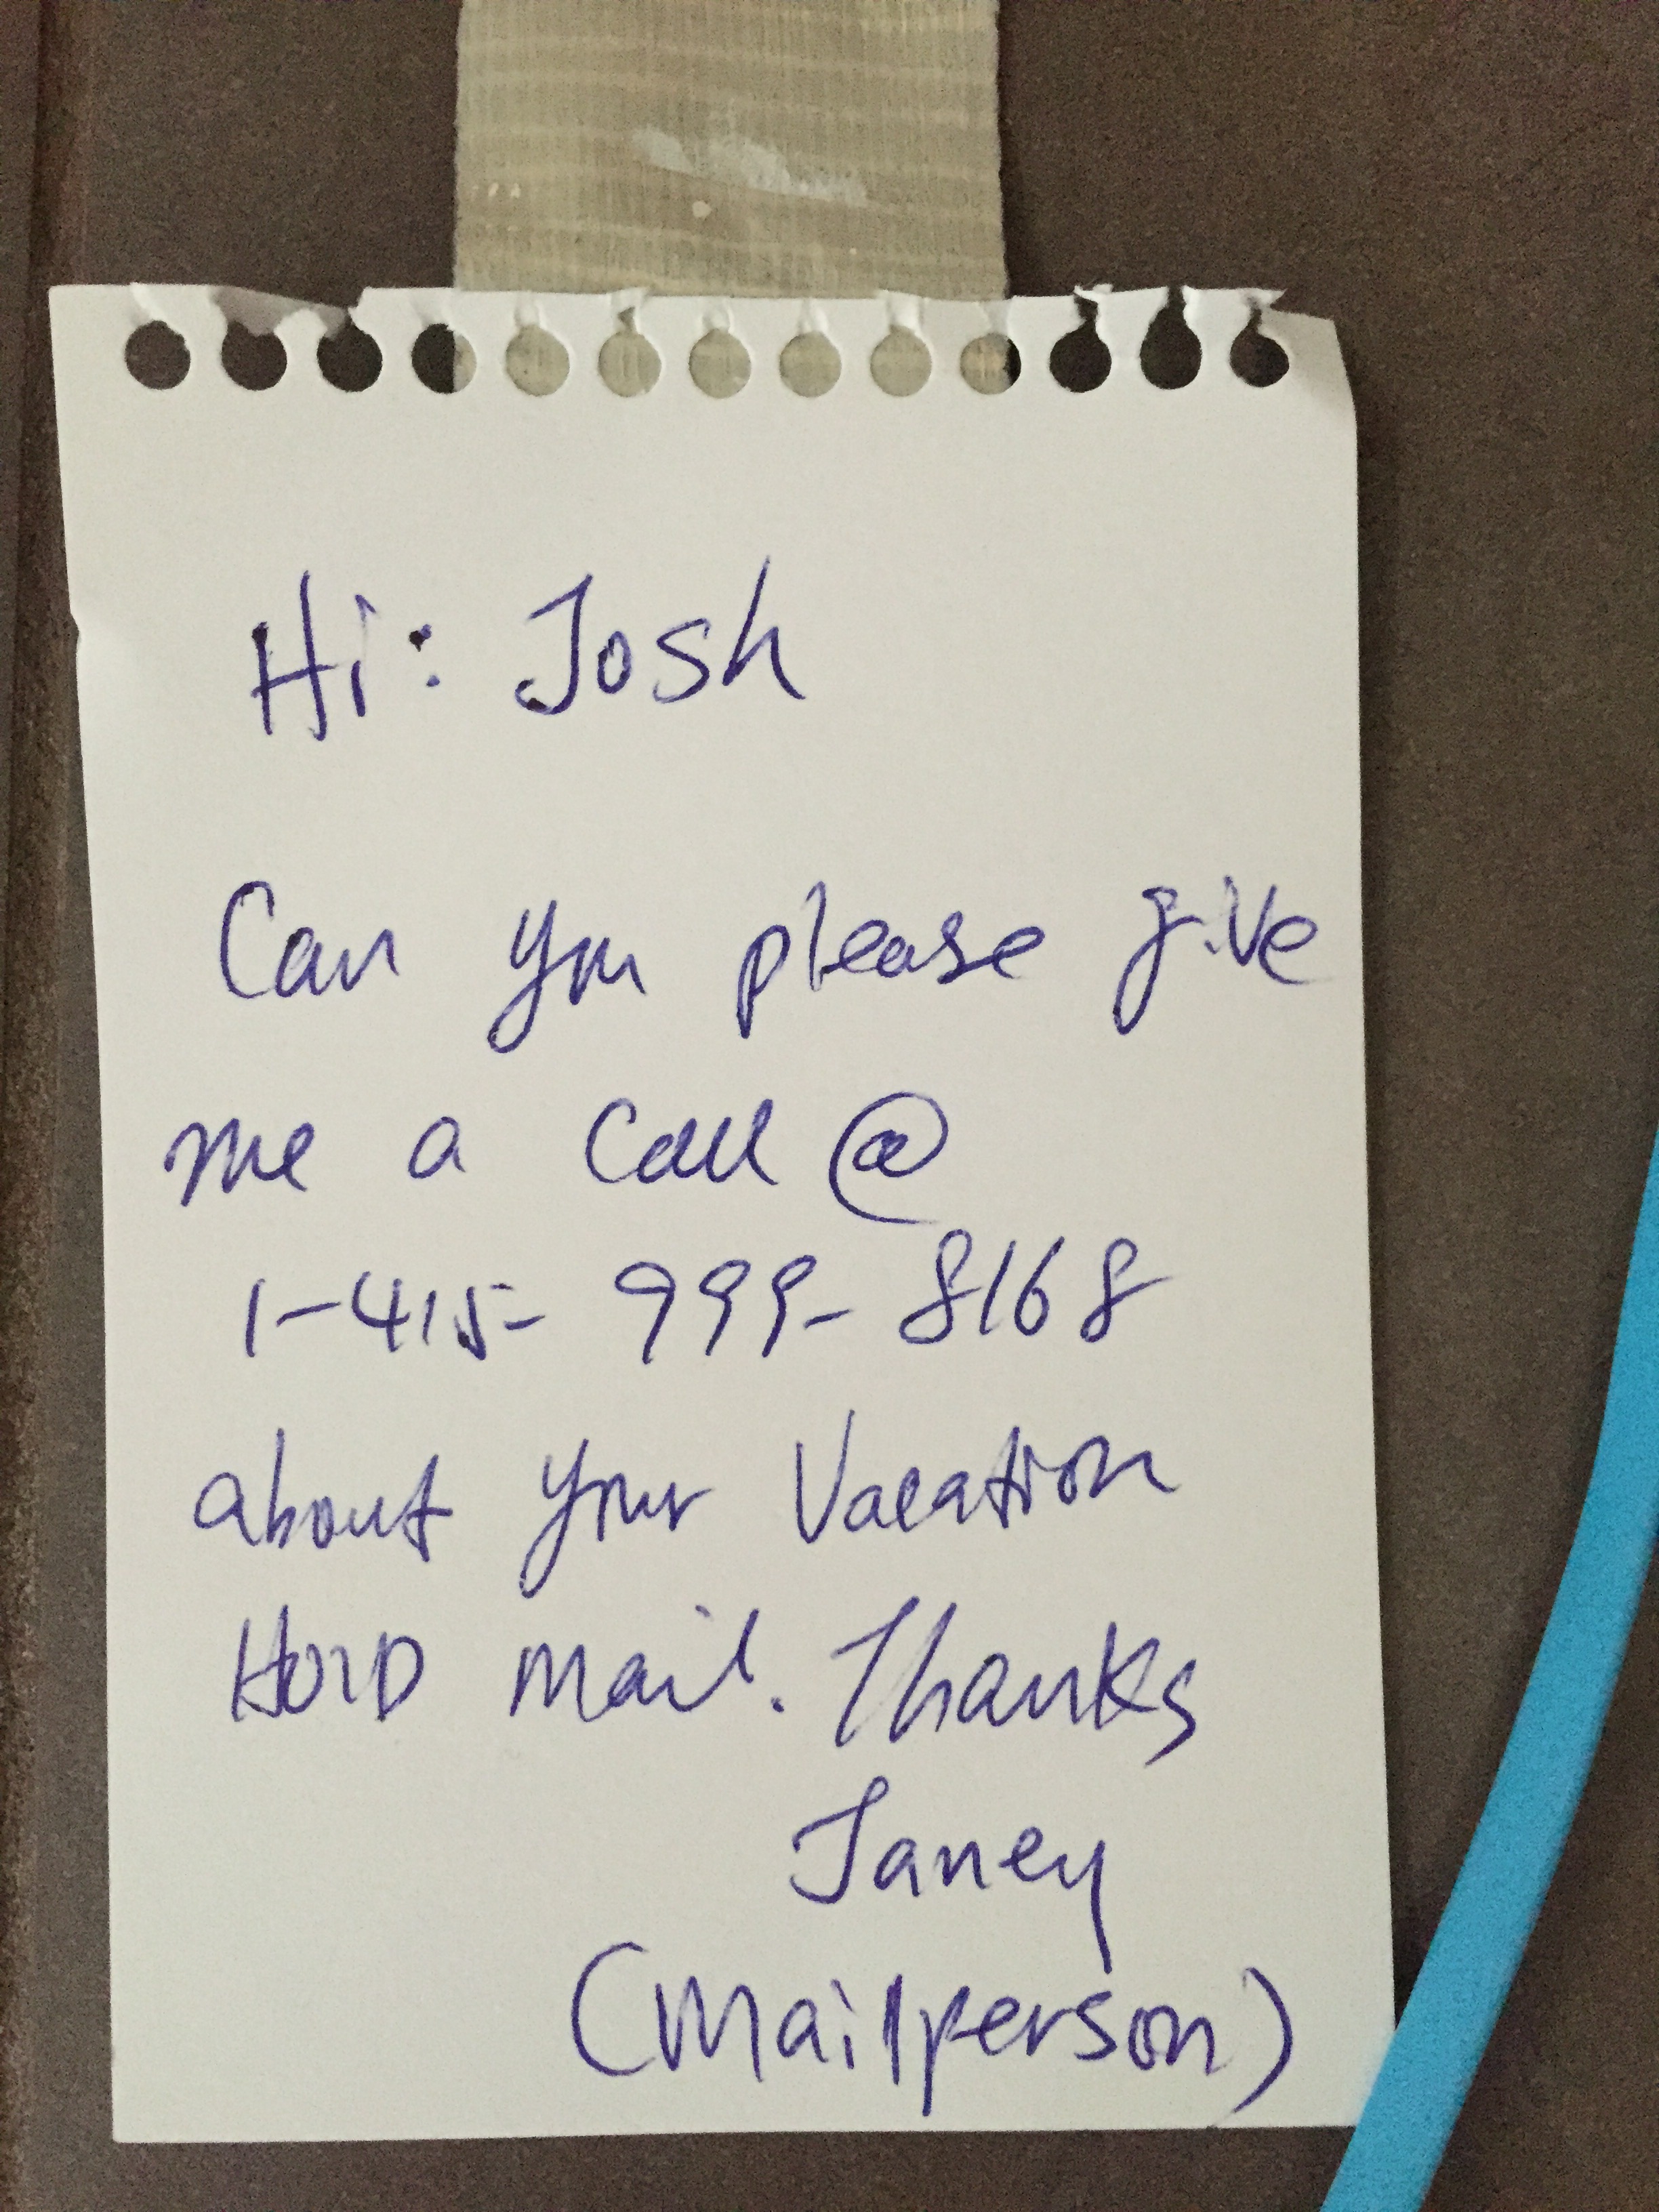 Hi: Josh
Can you please give
me a call @
1-415- 999- 8168
about your Vacation
HOlD mail. Thanks
Janey
(Mailperson)